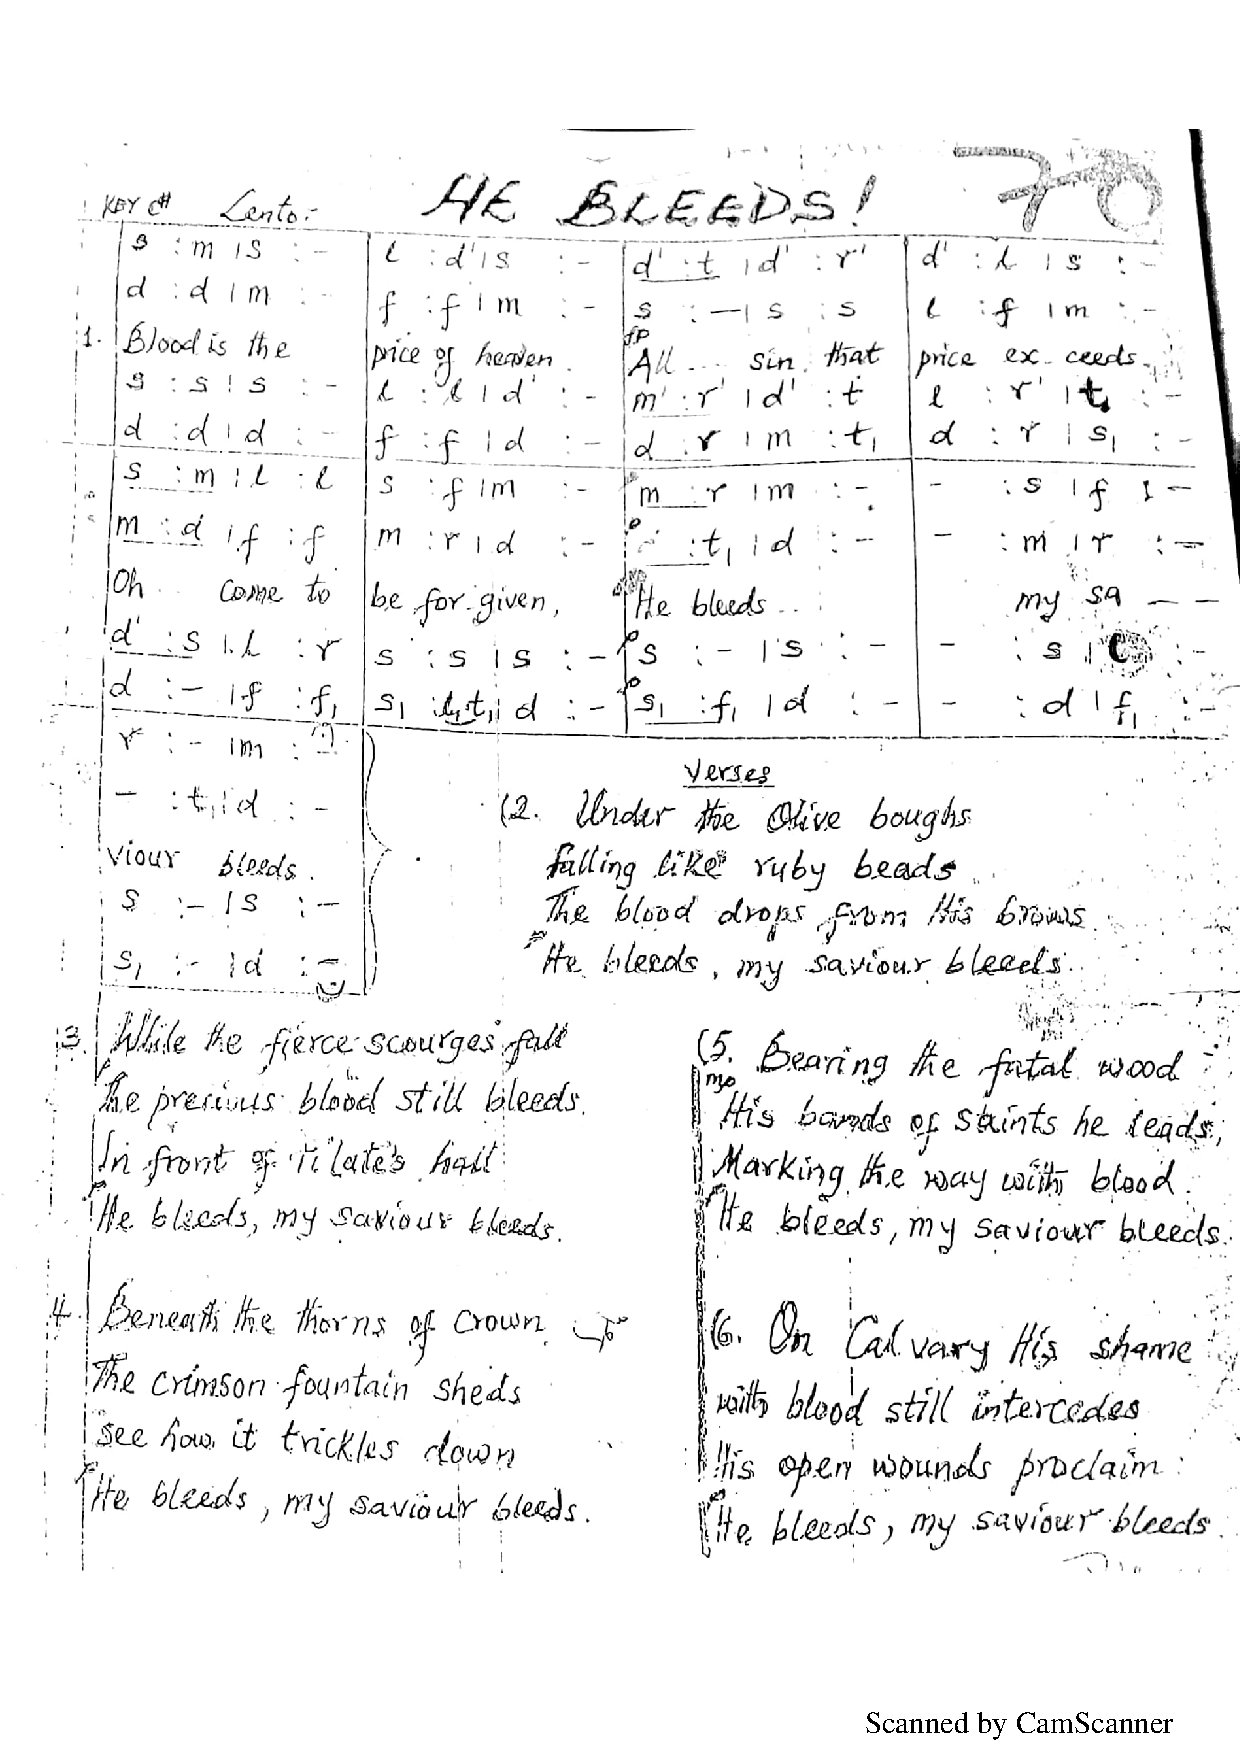 70
KEY C# Lento:- HE BLEEDS!
s : m | s : - l : d' | s : - d' : t | d' : r' d' : l | s : -
d : d | m : - f : f | m : - s : - | s : s l : f | m : -
1. Blood is the price of heaven. fp All .... sin that price ex-ceeds.
s : s | s : - l : l | d' : - m' : r' | d' : t l : r' | t : -
d : d | d : - f : f | d : - d : r | m : t₁ d : r | s₁ : -
s : m | l : l s : f | m : - m : r | m : - - : s | f : -
m : d | f : f m : r | d : - p : t₁ | d : - - : m | r : -
Oh .. come to be for-given, He bleeds ... my sa - -
d' : s | l : r s : s | s : - p s : - | s : - - : s | : -
d : - | f : f₁ s₁ : l₁.t₁ | d : - p s₁ : f₁ | d : - - : d | f₁ : -
r : - | m :
- : t₁ | d : -
viour bleeds.
s : - | s : -
s₁ : - | d : -
Verses
(2. Under the Olive boughs
falling like ruby beads
The blood drops from His brows
He bleeds, my saviour bleeds.
3. While the fierce scourges fall
The precious blood still bleeds.
In front of Pilate's hall
He bleeds, my saviour bleeds.
4. Beneath the thorns of crown
The crimson fountain sheds
See how it trickles down
He bleeds, my saviour bleeds.
(5. Bearing the fatal wood
His bands of staints he leads,
Marking the way with blood.
He bleeds, my saviour bleeds.
(6. On Calvary His shame
with blood still intercedes
His open wounds proclaim:
He bleeds, my saviour bleeds.
Scanned by CamScanner